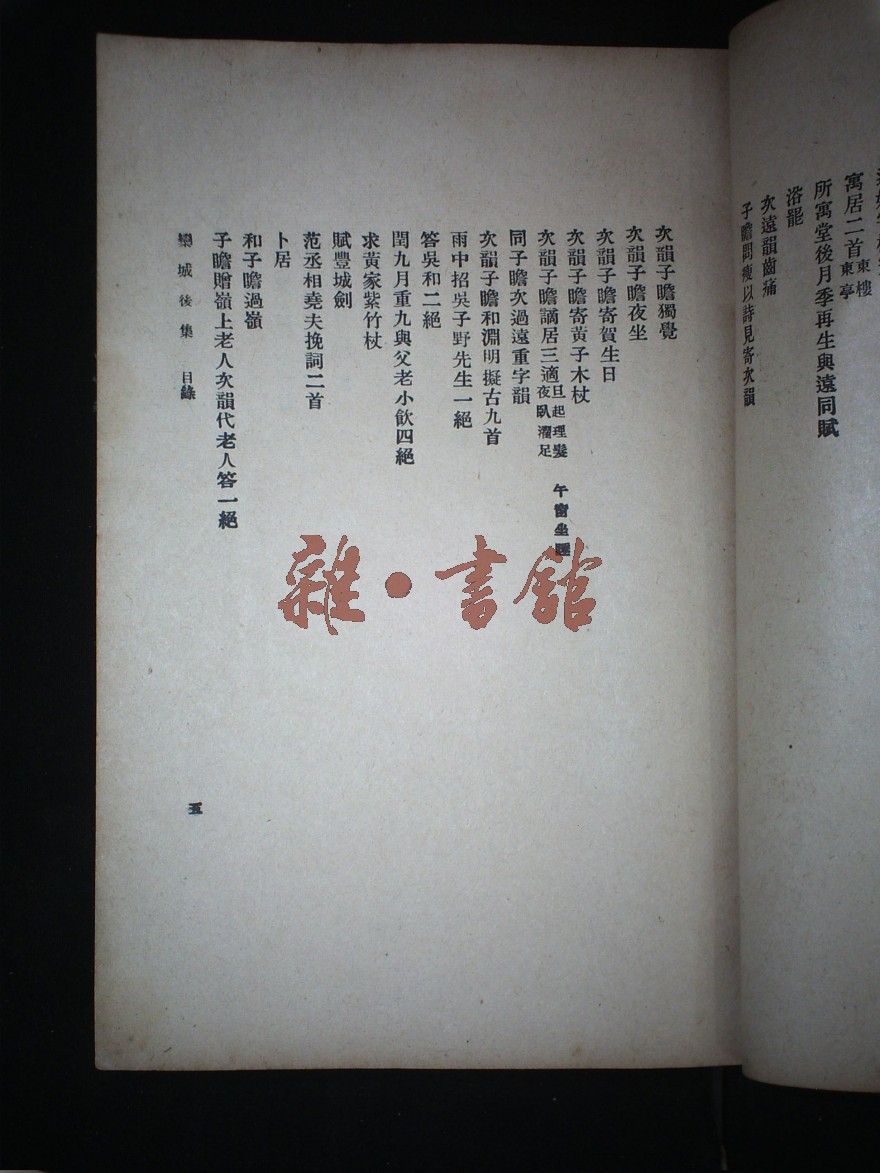 寓居二首東樓東亭
所寓堂後月季再生與遠同賦
浴罷
次遠韻齒痛
子瞻問瘦以詩見寄次韻
次韻子瞻獨覺
次韻子瞻夜坐
次韻子瞻寄賀生日
次韻子瞻寄黃子木杖
次韻子瞻謫居三適旦起理髮 午窗坐睡 夜臥濯足
同子瞻次過遠重字韻
次韻子瞻和淵明擬古九首
雨中招吳子野先生一絕
答吳和二絕
閏九月重九與父老小飲四絕
求黃家紫竹杖
賦豐城劍
范丞相堯夫挽詞二首
卜居
和子瞻過嶺
子瞻贈嶺上老人次韻代老人答一絕
欒城後集 目錄
五
雜·書館